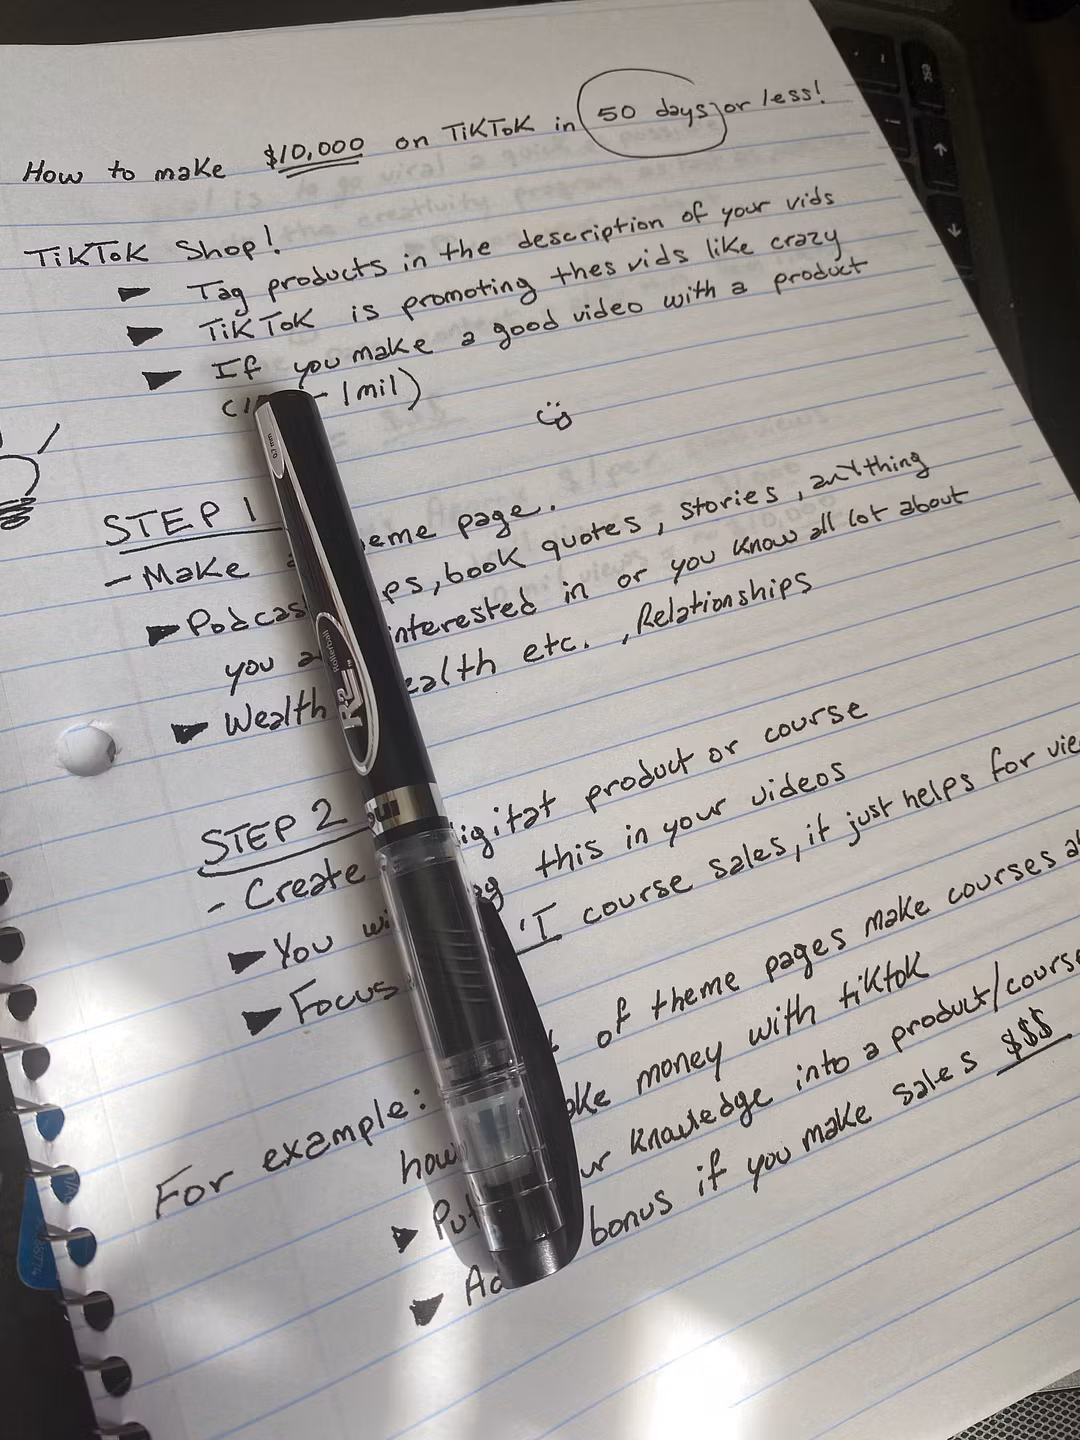 How to make $10,000 on TikTok in 50 days or less!
TikTok Shop!
Tag products in the description of your vids
TikTok is promoting thes vids like crazy
If you make a good video with a product
- 1mil)
STEP 1
- Make eme page.
Podcas ps, book quotes, stories, anything
you a interested in or you know all lot about
Wealth ealth etc., Relationships
STEP 2
- Create igital product or course
You wi this in your videos
Focus course sales, it just helps for vie
For example: of theme pages make courses a
how ke money with tiktok
Put ur knowledge into a product/course
Ad bonus if you make sales $$$
0.7 mm
Rollerball
esc